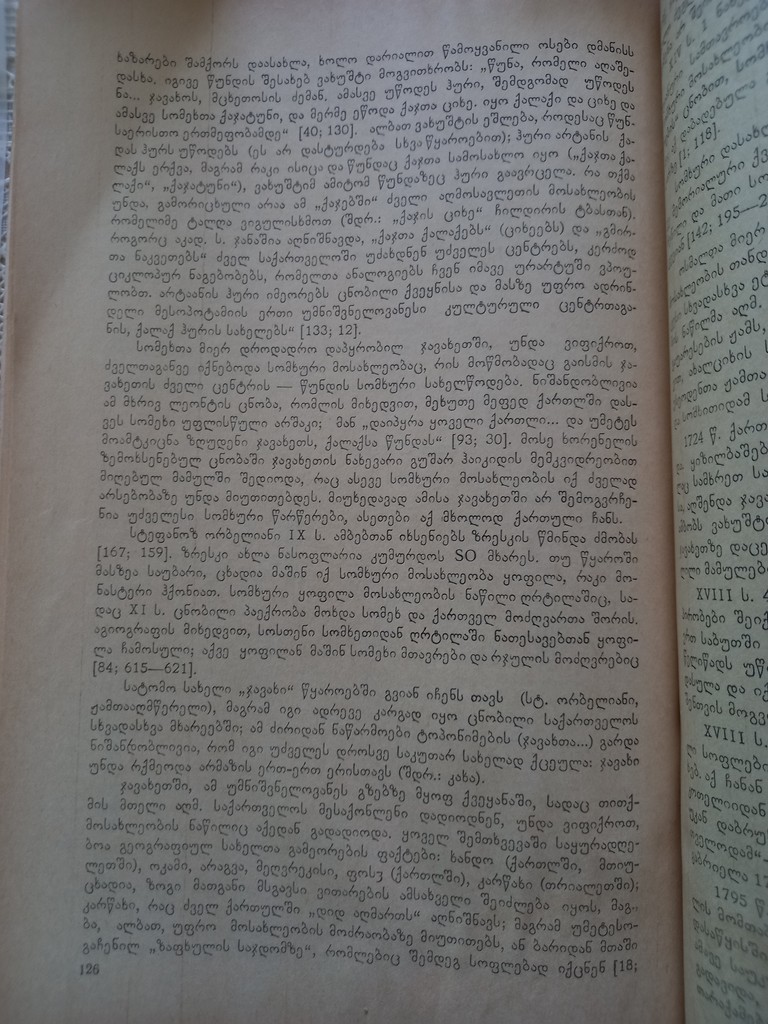 ხაზარები შამქორს დაასახლა, ხოლო დარიალით წამოყვანილი ოსები დმანისს
დასხა. იგივე წუნდის შესახებ ვახუშტი მოგვითხრობს: „წუნა, რომელი აღაშე-
ნა... ჯავახოს, მცხეთოსის ძემან. ამასვე უწოდეს ჰური, შემდგომად უწოდეს
ამასვე სომეხთა ქაჯატუნი, და მერმე ეწოდა ქაჯთა ციხე. იყო ქალაქი და ციხე და
საერისთო ერთმეფობამდე“ [40; 130]. ალბათ ვახუშტის ეშლება, როდესაც წუნ-
დას ჰურს უწოდებს (ეს არ დასტურდება სხვა წყაროებით); ჰური არტანის ქა-
ლაქს ერქვა, მაგრამ რაკი ისიც და წუნდაც ქაჯთა სამოსახლო იყო („ქაჯთა ქა-
ლაქი“, „ქაჯატუნი“), ვახუშტიმ ამიტომ წუნდაზეც ჰური გაავრცელა. რა თქმა
უნდა, გამორიცხული არაა ამ „ქაჯებში“ ძველი აღმოსავლეთის მოსახლეობის
რომელიმე ტალღა ვიგულისხმოთ (შდრ.: „ქაჯის ციხე“ ჩილდირის ტბასთან).
როგორც აკად. ს. ჯანაშია აღნიშნავდა, „ქაჯთა ქალაქებს“ (ციხეებს) და „გმირ-
თა ნაკვეთებს“ ძველ საქართველოში უძახდნენ უძველეს ცენტრებს, კერძოდ
ციკლოპურ ნაგებობებს, რომელთა ანალოგიებს ჩვენ იმავე ურარტუში ვპოუ-
ლობთ. არტაანის ჰური იმეორებს ცნობილი ქვეყნისა და მასზე უფრო ადრინ-
დელი მესოპოტამიის ერთი უმნიშვნელოვანესი კულტურული ცენტრთაგა-
ნის, ქალაქ ჰურის სახელებს“ [133; 12].
სომეხთა მიერ დროდადრო დაპყრობილ ჯავახეთში, უნდა ვიფიქროთ,
ძველთაგანვე იქნებოდა სომხური მოსახლეობაც, რის მოწმობადაც გაისმის ჯა-
ვახეთის ძველი ცენტრის — წუნდის სომხური სახელწოდება. ნიშანდობლივია
ამ მხრივ ლეონტის ცნობა, რომლის მიხედვით, მეხუთე მეფედ ქართლში დას-
ვეს სომეხი უფლისწული არშაკი; მან „დაიპყრა ყოველი ქართლი... და უმეტეს
მოამტკიცნა ზღუდენი ჯავახეთს, ქალაქსა წუნდას“ [93; 30]. მოსე ხორენელის
ზემოხსენებულ ცნობაში ჯავახეთის ნახევარი გუშარ ჰაიკიდის მემკვიდრეობით
მიღებულ მამულში შედიოდა, რაც ასევე სომხური მოსახლეობის იქ ძველად
არსებობაზე უნდა მიუთითებდეს. მიუხედავად ამისა ჯავახეთში არ შემოგვრჩე-
ნია უძველესი სომხური წარწერები, ასეთები აქ მხოლოდ ქართული ჩანს.
სტეფანოზ ორბელიანი IX ს. ამბებთან იხსენიებს ზრესკის წმინდა ძმობას
[167; 159]. ზრესკი ახლა ნასოფლარია კუმურდოს SO მხარეს. თუ წყაროში
მასზეა საუბარი, ცხადია მაშინ იქ სომხური მოსახლეობა ყოფილა, რაკი მო-
ნასტერი ჰქონიათ. სომხური ყოფილა მოსახლეობის ნაწილი ღრტილაშიც, სა-
დაც XI ს. ცნობილი პაექრობა მოხდა სომეხ და ქართველ მოძღვართა შორის.
აგიოგრაფის მიხედვით, სოსთენი სომხეთიდან ღრტილაში ნათესავებთან ყოფი-
ლა ჩამოსული; აქვე ყოფილან მაშინ სომეხი მთავრები და რჯულის მოძღვრებიც
[84; 615—621].
სატომო სახელი „ჯავახი“ წყაროებში გვიან იჩენს თავს (სტ. ორბელიანი,
ჟამთააღმწერელი), მაგრამ იგი ადრევე კარგად იყო ცნობილი საქართველოს
სხვადასხვა მხარეებში; ამ ძირიდან ნაწარმოები ტოპონიმების (ჯავახთა...) გარდა
ნიშანდობლივია, რომ იგი უძველეს დროსვე საკუთარ სახელად ქცეულა: ჯავახი
უნდა რქმეოდა არმაზის ერთ-ერთ ერისთავს (შდრ.: კახა).
ჯავახეთში, ამ უმნიშვნელოვანეს გზებზე მყოფ ქვეყანაში, სადაც თითქ-
მის მთელი აღმ. საქართველოს მესაქონლენი დადიოდნენ, უნდა ვიფიქროთ,
მოსახლეობის ნაწილიც აქედან გადადიოდა. ყოველ შემთხვევაში საყურადღე-
ბოა გეოგრაფიულ სახელთა გამეორების ფაქტები: ხანდო (ქართლში, მთიუ-
ლეთში), ოკამი, არაგვა, მეღვრეკისი, ფოსვ (ქართლში), კარწახი (თრიალეთში);
ცხადია, ზოგი მათგანი მსგავსი ვითარების ამსახველი შეიძლება იყოს, მაგ.,
კარწახი, რაც ძველ ქართულში „დიდ აღმართს“ აღნიშნავს; მაგრამ უმეტესო-
ბა, ალბათ, უფრო მოსახლეობის მოძრაობაზე მიუთითებს, ან ბარიდან მთაში
გაჩენილ „ზაფხულის საჯდომზე“, რომლებიც შემდეგ სოფლებად იქცნენ [18;
126
1; 118].
[142; 195—2
1724 წ. ქართ
XVIII ს.
XVIII ს.
1795 წ